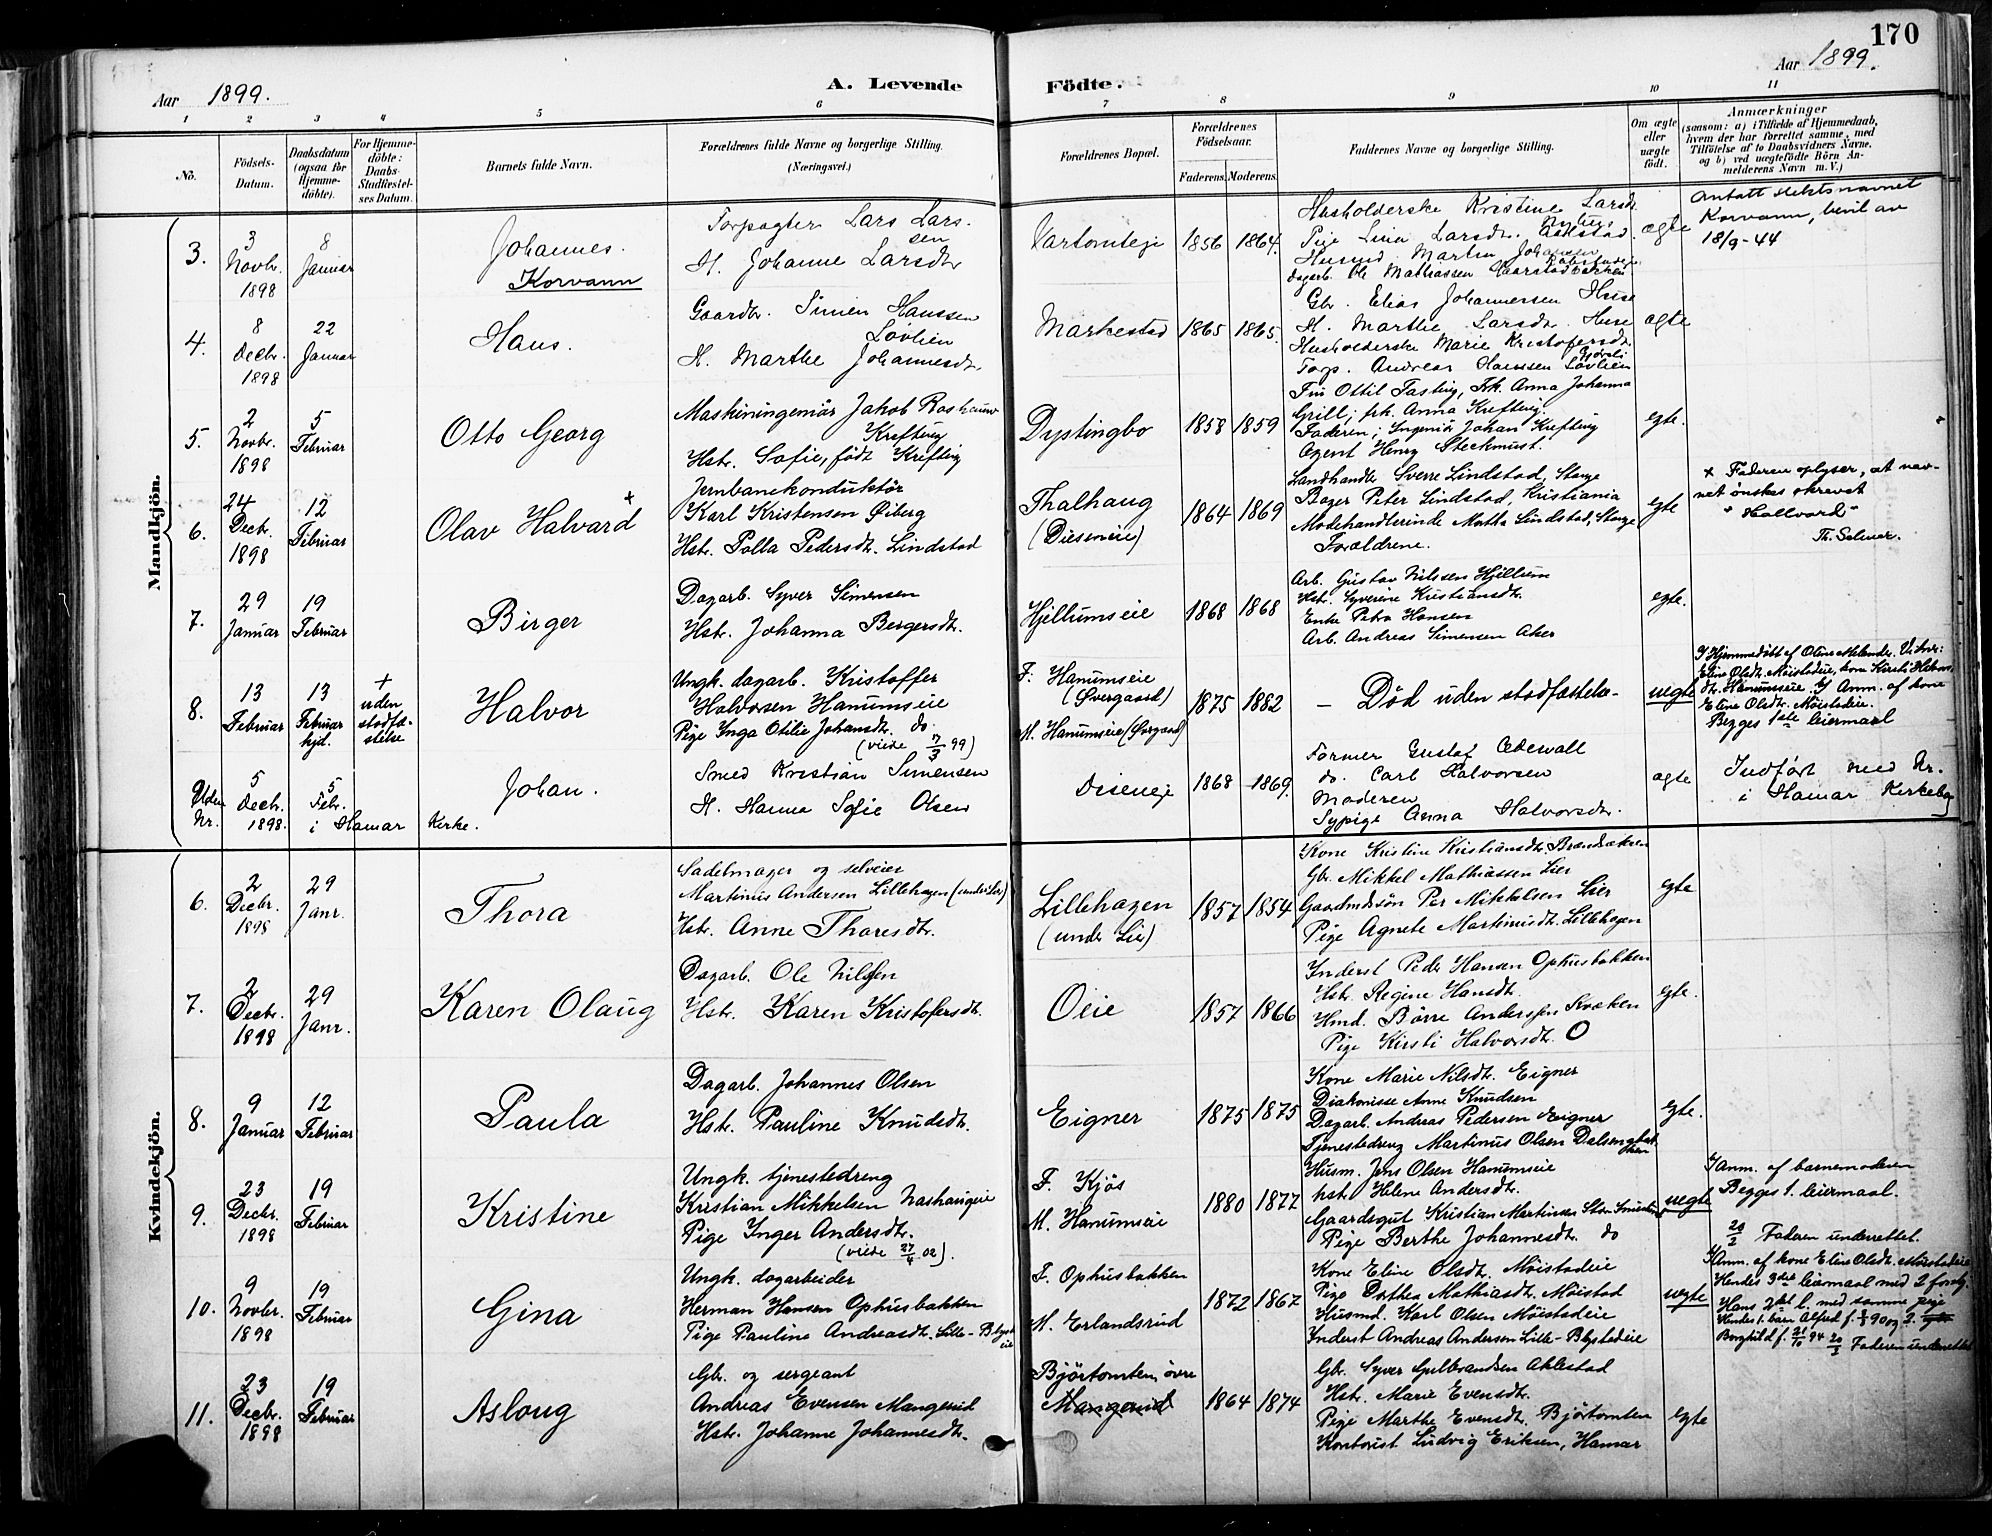 170
Aar 1899.
A. Levende Födte.
Aar 1899.
1 2 3 4 5 6 7 8 9 10 11
No.
Födsels-Datum.
Daabsdatum (ogsaa for Hjemme-döbte).
For Hjemme-döbte: Daabs-Stadfæstel-ses Datum.
Barnets fulde Navn.
Forældrenes fulde Navne og borgerlige Stilling.
(Næringsvei.)
Forældrenes Bopæl.
Forældrenes Födselsaar.
Faderens. Moderens.
Faddernes Navne og borgerlige Stilling.
Om ægte eller uægte födt.
Anmærkninger
(saasom: a) i Tilfælde af Hjemmedaab,
hvem der har forrettet samme, med
Tilföielse af to Daabsvidners Navne,
og b) ved uægtefödte Börn An-
melderens Navn m. V.)
Mandkjön.
3.
3 Novbr. 1898
8 Januar
Johannes.
Korvann
Forpagter Lars Lars-
sen
H. Johanne Larsdtr
Vartomteje
1856 1864.
Husholderske Kristine Larsdr
Pige Lina Larsdr.
Husmd Martin Johansen
dagarb. Ole Mathiassen
ægte
Antatt slektsnavnet
Korvann, bevil av
18/9-44
4.
8 Decbr. 1898
22 Januar
Hans.
Gaardbr. Simen Hanssen
Lövlien
H. Marthe Johannesdr.
Markestad
1865 1865.
Gbr. Elias Johannessen Huse
H. Marthe Larsdr. Huse
Husholderske Marie Kristofersdr
Forp. Andreas Hanssen Lövlien
ægte
5.
2 Novbr. 1898
5 Februar
Otto Georg
Maskiningeniör Jakob Roshauw
Krefting
Hstr. Sofie, födt Krefting
Dystingbo
1858 1859
Fru Ottil Fasting, Frk. Anna Johanna
Grill; frk. Anna Krefting.
Faderen; Ingeniör Johan Krefting
Agent Henry Steckmest.
egte.
6.
24 Decbr. 1898
12 Februar
Olav Halvard +
Jernbanekonduktör
Karl Kristensen Öiberg
Hstr. Polla Pedersdtr. Lindstad
Thalhaug
(Diseneie)
1864 1869
Landhandler Sverre Lindstad, Stange
Bager Peter Lindstad, Kristiania
Modehandlerinde Martha Lindstad, Stange
Forældrene.
egte
+ Faderen oplyser, at nav-
net önskes skrevet
"Hallvard"
Th. Selmer.
7.
29 Januar
19 Februar
Birger
Dagarb. Syver Simensen
Hstr. Johanna Bergersdtr.
Hjellumseie
1868 1868
Arb. Gustav Nilssen Hjellum
Hstr. Syverine Kristiansdtr.
Enke Petra Hansen
Arb. Andreas Simensen Aker
egte.
8.
13 Februar
13 Februar hjd.
+ uden stadfæ-stelse
Halvor
Ungk. dagarb. Kristoffer
Halvorsen Hanumseie
Pige Inga Otilie Johansdtr. do.
(viede 7/3 99)
F. Hanumseie
(Övergaard)
M. Hanumseie (Övergaard)
1875 1882
– Död uden stadfæstelse –
uegte
Hjemmedöbt af Oline Melander. Vidner:
Eline Olsdtr. Möistadeie, kone Kirsti Halvors-
dtr. Hanumseie. Anm. af kone
Eline Olsdtr. Möistadeie.
Begges 1ste leiermaal
Uden Nr.
5 Decbr. 1898.
5 Febr.
i Hamar Kirke.
Johan.
Smed Kristian Simensen
H. Hanna Sofie Olsen
Diseneje
1868 1869.
Former Gustaf Cedewall
do. Carl Halvorsen
Moderen
Sypige Anna Halvorsdr.
ægte
Indført med Nr.
i Hamar Kirkebog
Kvindekjön.
6.
2 Decbr. 1898
29 Janr.
Thora
Sadelmager og selveier
Martinius Andersen Lillehagen (under Lier)
Hstr. Anne Thoresdtr.
Lillehagen
(under Lier)
1857 1854
Kone Kristine Kristiansdtr. Brændækren
Gbr. Mikkel Mathiassen Lier
Gaardmdsön Per Mikkelsen Lier
Pige Agnete Martiniusdtr. Lillehagen
egte
7.
2 Decbr. 1898
29 Janr.
Karen Olaug
Dagarb. Ole Nilssen
Hstr. Karen Kristofersdtr.
Oeie
1857 1866
Inderst Peder Hansen Ophusbakken
Hstr. Regine Hansdtr.
Hmd. Börre Anderssen Kvæken
Pige Kirsti Halvorsdtr. O
egte.
8.
9 Januar
12 Februar
Paula
Dagarb. Johannes Olsen
Hstr. Pauline Knudsdtr.
Eigner
1875 1875
Kone Marie Nilsdtr. Eigner
Diakonisse Anne Knudsen
Dagarb. Andreas Pedersen Eigner
Tjenestedreng Martinus Olsen
egte.
9.
23 Decbr. 1898
19 Februar
Kristine
Ungk. tjenestedreng
Kristian Mikkelsen Nashaugeie
Pige Inger Andersdtr.
(viede 27/4 02).
F. Kjös
M. Hanumseie
1880 1877
Husm. Jens Olsen Hanumseie
hst. Helene Andersdtr.
Gaardsgut Kristian Martinsen
Pige Berthe Johannesdtr. do
uegte
Anm. af barnemoderen
Begges 1. leiermaal.
20/2 Faderen underrettet.
10.
9 Novbr. 1898
19 Februar
Gina
Ungk. dagarbeider
Herman Hansen Ophusbakken
Pige Pauline Andreasdtr. Lille-Blystadeie
F. Ophusbakken
M. Erlandsrud
1872 1867
Kone Eline Olsdtr. Möistadeie
Pige Dorthea Mathiasdtr. Möistad
Husmd. Karl Olsen Möistadeie
Inderst Andreas Andersen Lille-Blystadeie
uegte
Anm. af kone Eline Olsdtr. Möistadeie
Hendes 3die leiermaal med 2 forsk.
Hans 2det l. med samme pige
Hendes 1. barn Alfred f. 90 og 2.
Borghild f. 21/10 94 20/2 Faderen underrettet
11.
23 Decbr. 1898
19 Februar
Aslaug
Gbr. og sergeant
Andreas Evensen Mangerud
Hstr. Johanne Johannesdtr.
Björtomten, övre
Mangerud
1864 1874
Gbr. Syver Gulbrandsen Ahlestad
Hstr. Marie Evensdtr.
Pige Marthe Evensdtr. Björtomten
Kontorist Ludvig Eriksen, Hamar
egte